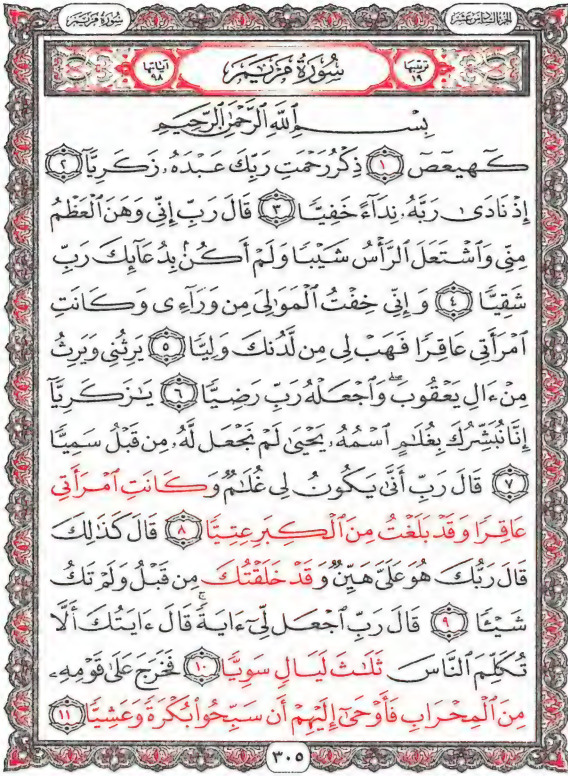 الجزء السادس عشر سورة مريم
ترتيبها ١٩ سورة مريم آياتها ٩٨
بِسْمِ ٱللَّهِ ٱلرَّحْمَٰنِ ٱلرَّحِيمِ
كٓهيعٓصٓ ١ ذِكْرُ رَحْمَتِ رَبِّكَ عَبْدَهُۥ زَكَرِيَّآ ٢
إِذْ نَادَىٰ رَبَّهُۥ نِدَآءً خَفِيًّا ٣ قَالَ رَبِّ إِنِّى وَهَنَ ٱلْعَظْمُ
مِنِّى وَٱشْتَعَلَ ٱلرَّأْسُ شَيْبًا وَلَمْ أَكُنۢ بِدُعَآئِكَ رَبِّ
شَقِيًّا ٤ وَإِنِّى خِفْتُ ٱلْمَوَٰلِىَ مِن وَرَآءِى وَكَانَتِ
ٱمْرَأَتِى عَاقِرًا فَهَبْ لِى مِن لَّدُنكَ وَلِيًّا ٥ يَرِثُنِى وَيَرِثُ
مِنْ ءَالِ يَعْقُوبَ ۖ وَٱجْعَلْهُ رَبِّ رَضِيًّا ٦ يَٰزَكَرِيَّآ
إِنَّا نُبَشِّرُكَ بِغُلَٰمٍ ٱسْمُهُۥ يَحْيَىٰ لَمْ نَجْعَل لَّهُۥ مِن قَبْلُ سَمِيًّا
٧ قَالَ رَبِّ أَنَّىٰ يَكُونُ لِى غُلَٰمٌ وَكَانَتِ ٱمْرَأَتِى
عَاقِرًا وَقَدْ بَلَغْتُ مِنَ ٱلْكِبَرِ عِتِيًّا ٨ قَالَ كَذَٰلِكَ
قَالَ رَبُّكَ هُوَ عَلَىَّ هَيِّنٌ وَقَدْ خَلَقْتُكَ مِن قَبْلُ وَلَمْ تَكُ
شَيْـًٔا ٩ قَالَ رَبِّ ٱجْعَل لِّىٓ ءَايَةً ۚ قَالَ ءَايَتُكَ أَلَّا
تُكَلِّمَ ٱلنَّاسَ ثَلَٰثَ لَيَالٍ سَوِيًّا ١٠ فَخَرَجَ عَلَىٰ قَوْمِهِۦ
مِنَ ٱلْمِحْرَابِ فَأَوْحَىٰٓ إِلَيْهِمْ أَن سَبِّحُوا۟ بُكْرَةً وَعَشِيًّا ١١
٣٠٥